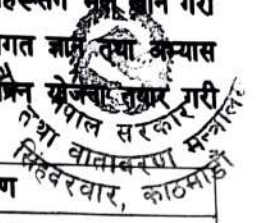 गरी
गत ज्ञान तथा अभ्यास
योजना तयार गरी
नेपाल सरकार
तथा वातावरण मन्त्रालय
सिंहदरवार, काठमाडौं
ण